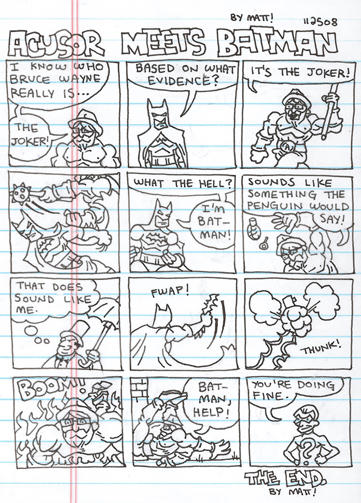 BY MATT!
112508
ACUSOR MEETS BATMAN
I KNOW WHO
BRUCE WAYNE
REALLY IS...
THE
JOKER!
BASED ON WHAT
EVIDENCE?
IT'S THE JOKER!
WHAT THE HELL?
I'M
BAT-
MAN!
SOUNDS LIKE
SOMETHING THE
PENGUIN WOULD
SAY!
THAT DOES
SOUND LIKE
ME.
FWAP!
THUNK!
BOOM!
BAT-
MAN,
HELP!
YOU'RE DOING
FINE.
?
THE END.
BY MATT!